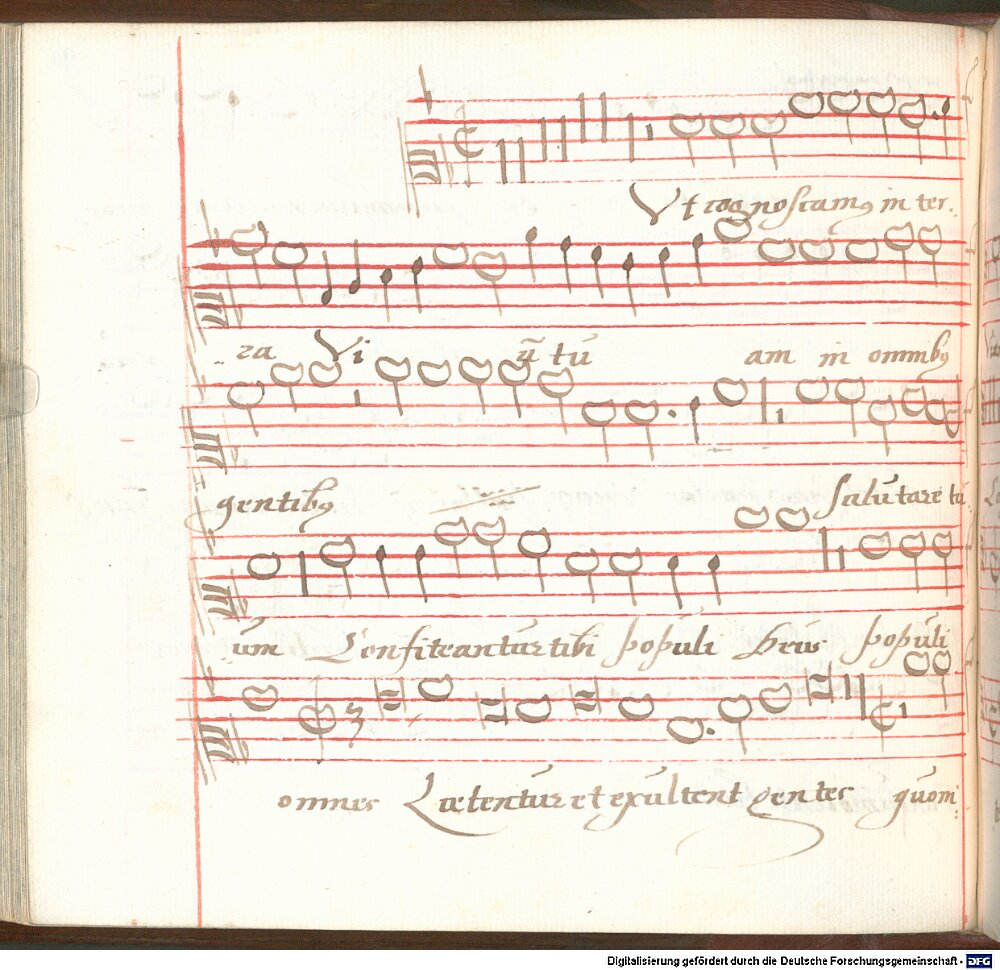 Ut cognoscamꝰ in ter:
ra Vi ã tũ am in omnibꝰ
gentibꝰ salutare tu
um Confiteantur tibi populi Deus populi
omnes Lætentur et exultent gentes quoni
Digitalisierung gefördert durch die Deutsche Forschungsgemeinschaft - DFG